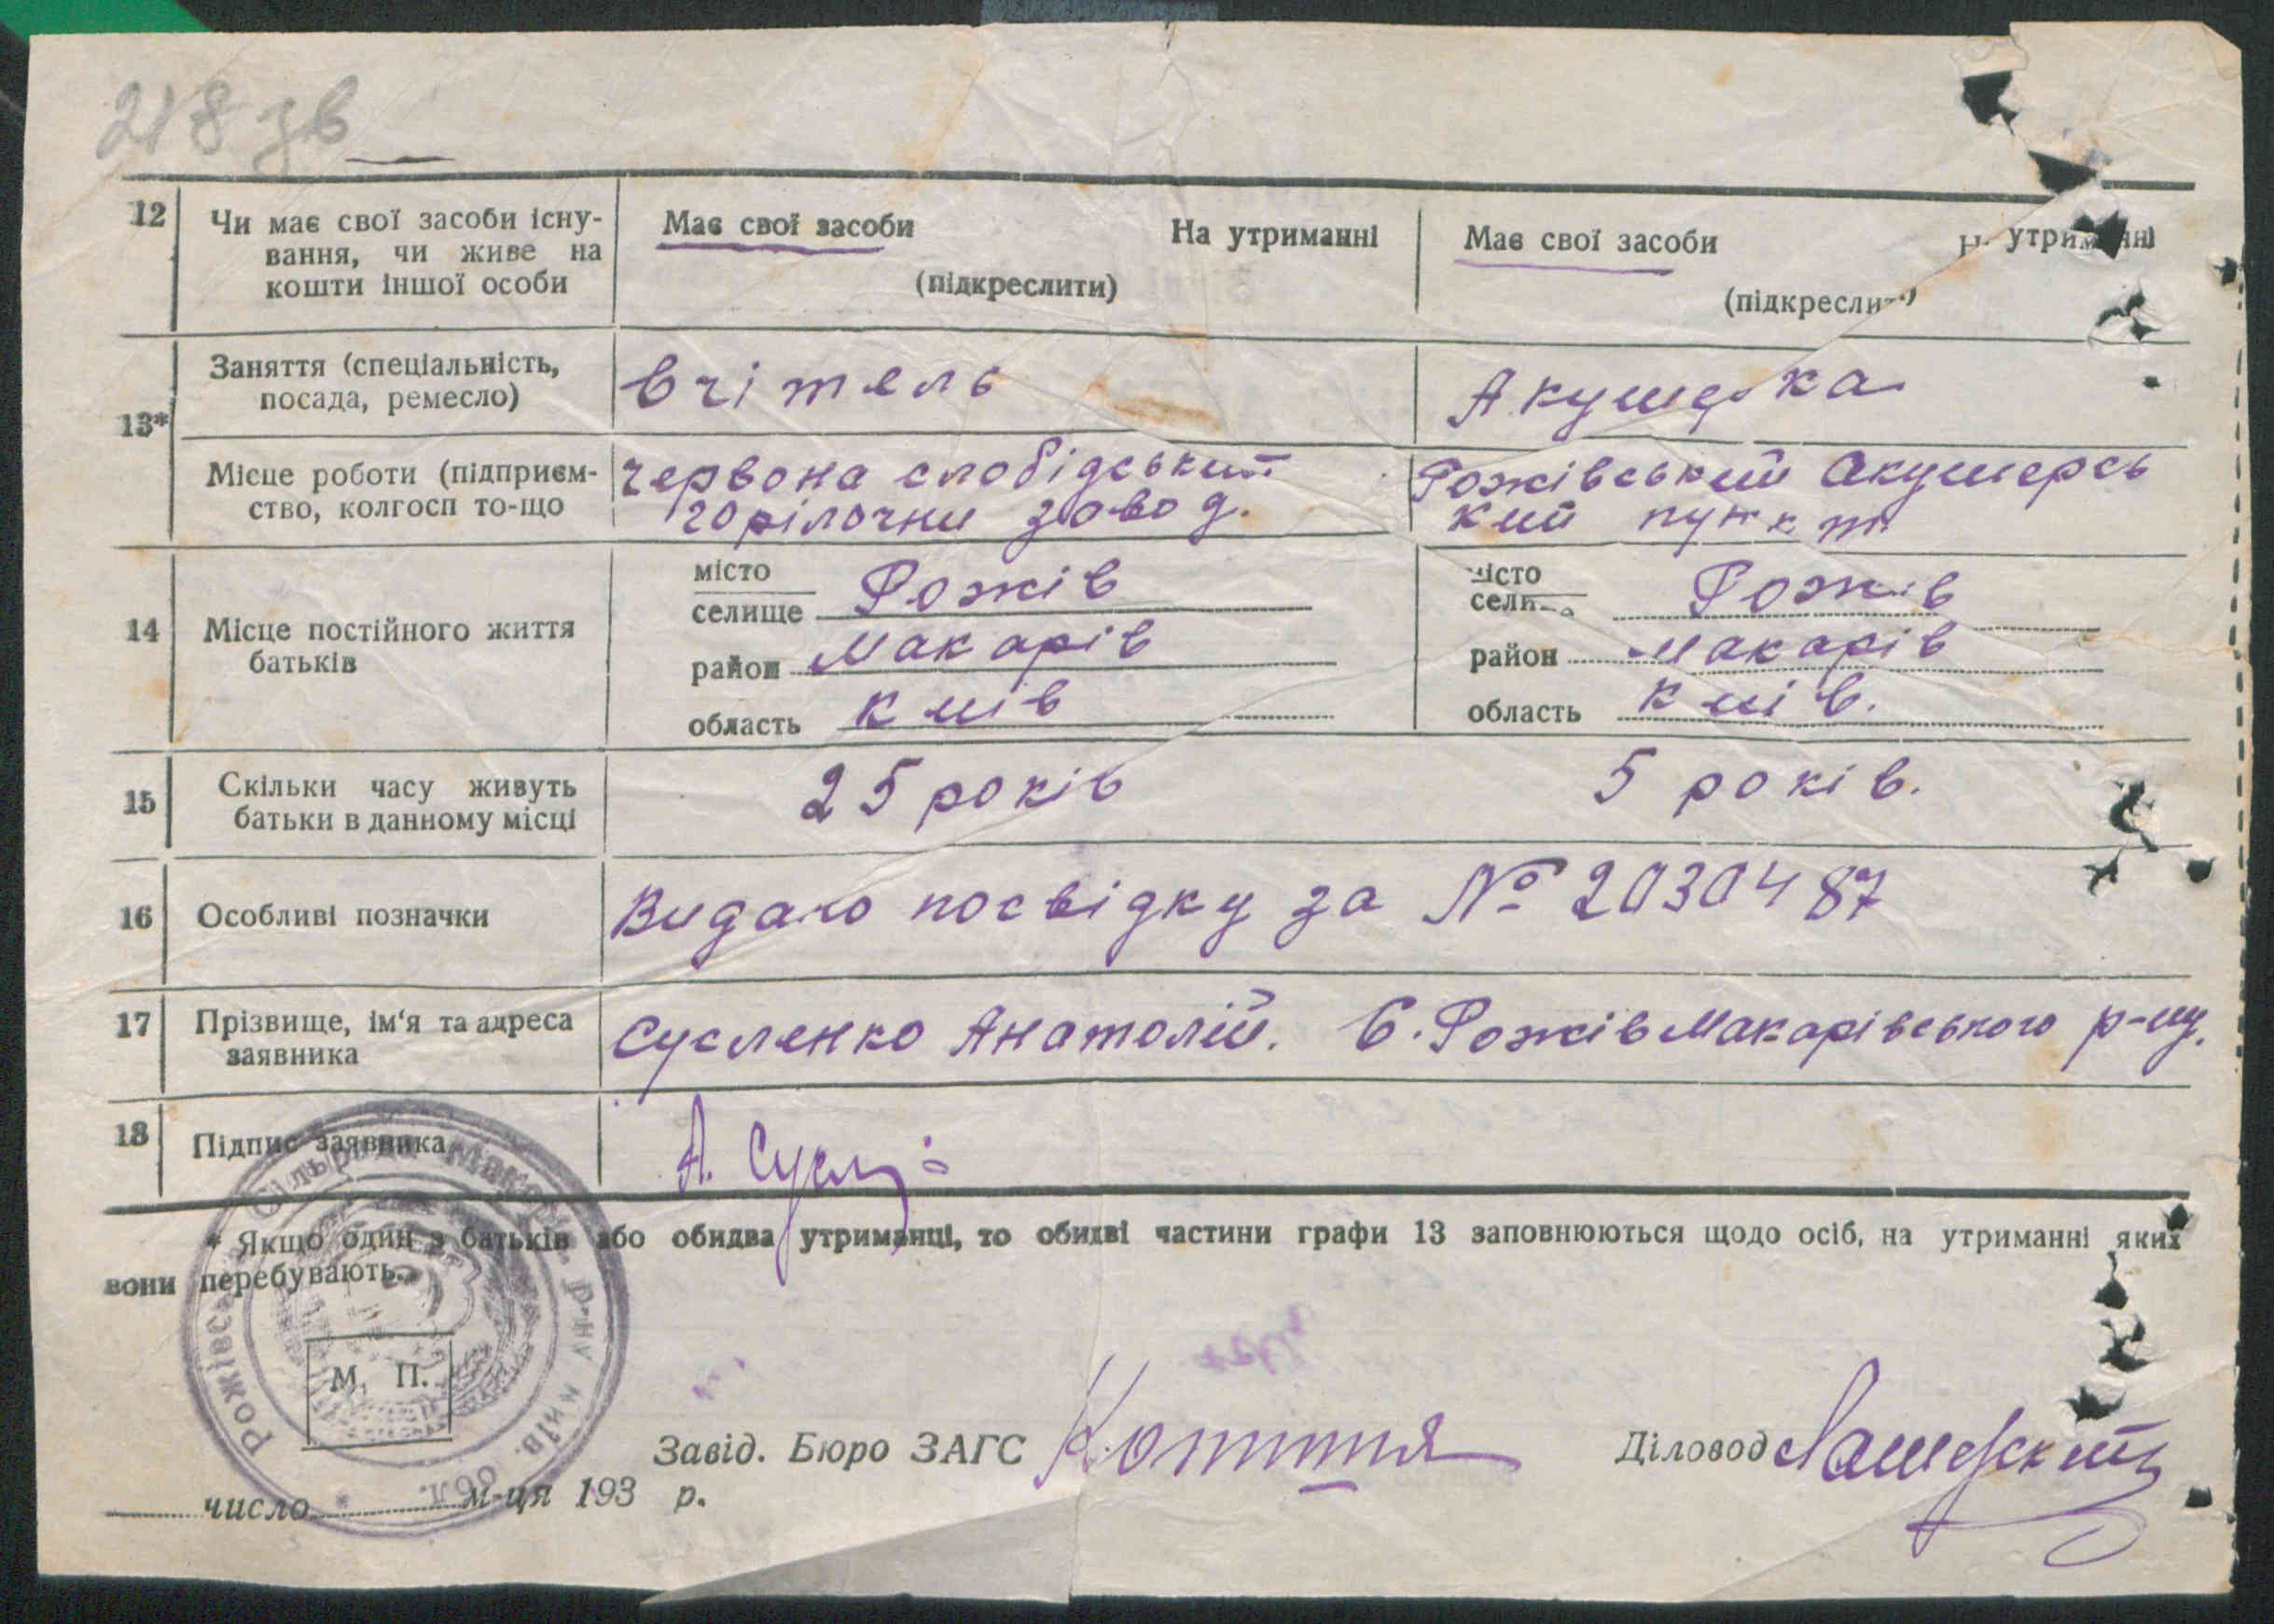 218 зв
12 Чи має свої засоби існу-
вання, чи живе на
кошти іншої особи
Має свої засоби На утриманні
(підкреслити)
Має свої засоби утриманні
(підкреслити)
13*
Заняття (спеціальність,
посада, ремесло)
Вчітель
Акушерка
Місце роботи (підприєм-
ство, колгосп то-що
Червона слобідський
горілочни завод.
Рожівський Акушерсь
кий пункт
14 Місце постійного життя
батьків
місто
селище Рожів
район Макарів
область Київ
місто
селище Рожів
район Макарів
область Київ.
15 Скільки часу живуть
батьки в данному місці
25 років
5 років.
16 Особливі позначки
Видано посвідку за № 2030487
17 Прізвище, ім'я та адреса
заявника
Сусленко Анатолій. С. Рожів Макарівського р-ну.
18 Підпис заявника
А. Сусл
* Якщо один з батьків або обидва утриманці, то обидві частини графи 13 заповнюються щодо осіб, на утриманні яких
вони перебувають.
Рожівс Сільрада Макар. р-ну Київ. обл. *
М. П.
Завід. Бюро ЗАГС
Діловод
число м-ця 193 р.